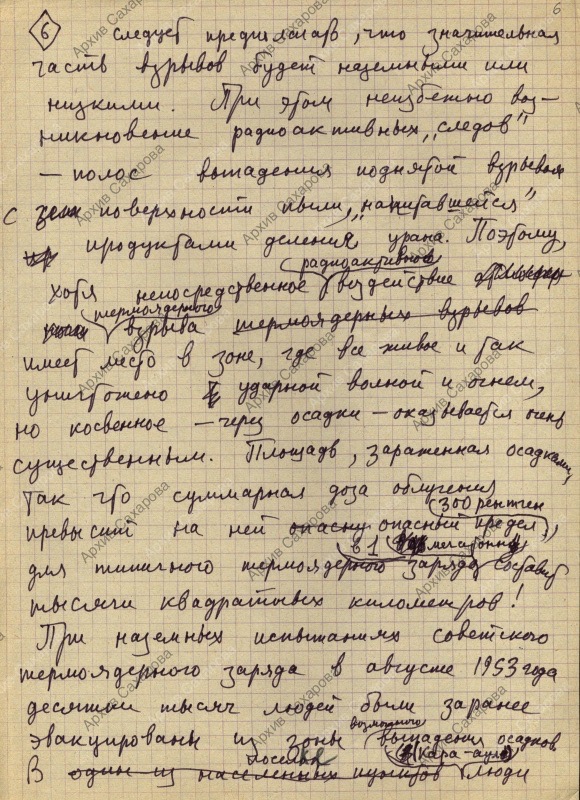 6
6
следует предполагать, что значительная
часть взрывов будет наземными или
низкими. При этом неизбежно воз-
никновение радиоактивных „следов"
— полос выпадения поднятой взрывом
с поверхности пыли, „напитавшейся"
продуктами деления урана. Поэтому,
радиоактивное
хотя непосредственное воздействие
термоядерного
взрыва термоядерных взрывов
имеет место в зоне, где все живое и так
уничтожено ударной волной и огнем,
но косвенное — через осадки — оказывается очень
существенным. Площадь, зараженная осадками,
так что суммарная доза облучения
(300 рентген
превысит на ней опасную опасный предел),
в 1 мегатонну
для типичного термоядерного заряда составит
тысячи квадратных километров!
При наземных испытаниях советского
термоядерного заряда в августе 1953 года
десятки тысяч людей были заранее
возможного
эвакуированы из зоны выпадения осадков
поселке (Кара-аул)
В один из населенных пунктов люди
Архив Сахарова